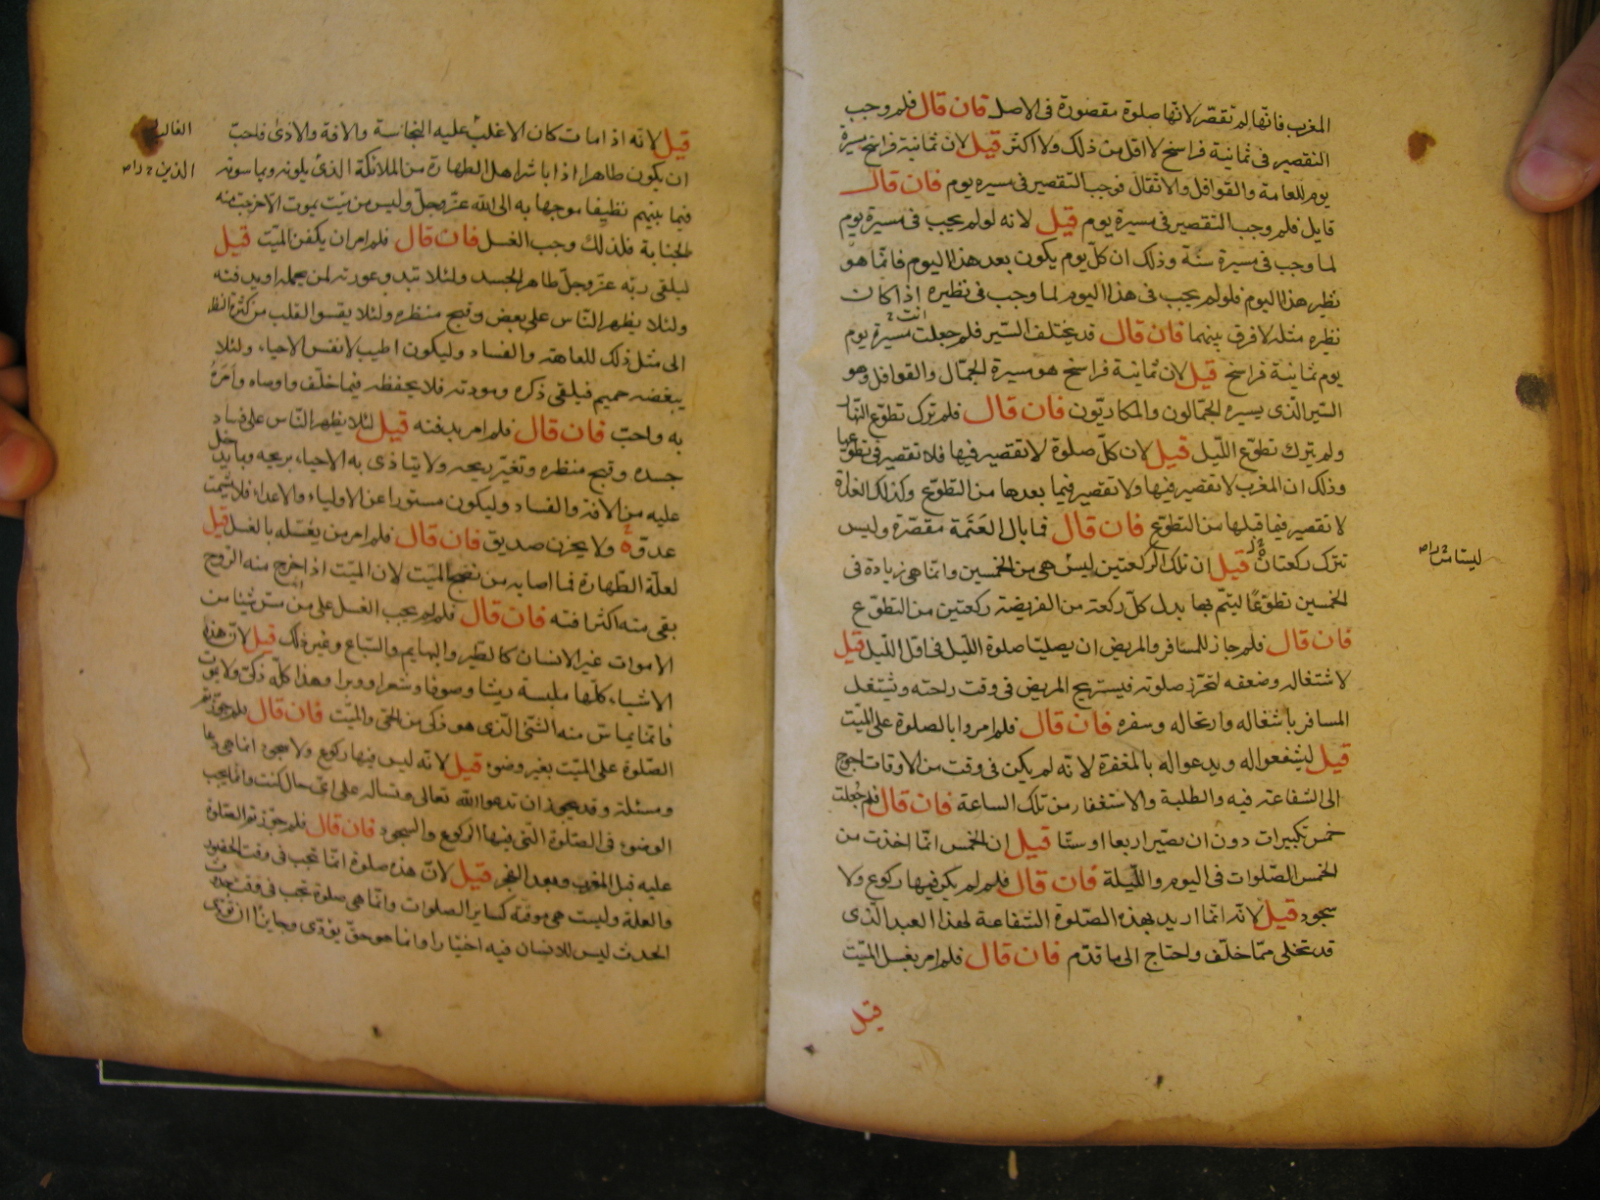 المغرب فانها لم تقصر لانها صلوة مقصورة فى الاصل فان قال فلم وجب
التقصير فى ثمانية فراسخ لا اقل من ذلك ولا اكثر قيل لان ثمانية فراسخ مسيرة
يوم للعامة والقوافل والاثقال فوجب التقصير فى مسيره يوم فان قال
قايل فلم وجب التقصير فى مسيرة يوم قيل لانه لو لم يجب فى مسيرة يوم
لما وجب فى مسيرة سنة وذلك ان كل يوم يكون بعد هذا اليوم فانما هو
نظير هذا اليوم فلو لم يجب فى هذا اليوم لما وجب فى نظيره اذا كان
نظيره مثله لا فرق بينهما فان قال قد يختلف السير فلم جعلت انت مسيرة يوم
يوم ثمانية فراسخ قيل لان ثمانية فراسخ هو مسيرة الجمال والقوافل وهو
السير الذى يسيره الجمالون والمكاريون فان قال فلم ترك تطوع النهار
ولم يترك تطوع الليل قيل لان كل صلوة لا تقصير فيها فلا تقصير فى تطوعها
وذلك ان المغرب لا تقصير فيها ولا تقصير فيما بعدها من التطوع وكذلك الغداة
لا تقصير فيما قبلها من التطوع فان قال فما بال العتمة مقصرة وليس
تترك ركعتاه قيل ان تلك الركعتين ليس هى من الخمسين وانما هى زيادة فى
الخمسين تطوعا ليتم بها بدل كل ركعة من الفريضة ركعتين من التطوع
فان قال فلم جاز للمسافر والمريض ان يصليا صلوة الليل فى اول الليل قيل
لاشتغاله وضعفه لتحرز صلوته فيستريح المريض فى وقت راحته وشتغل
المسافر باشغاله وارتحاله وسفره فان قال فلم امروا بالصلوة على الميت
قيل ليشفعوا له ويدعوا له بالمغفرة لانه لم يكن فى وقت من الاوقات احوج
الى الشفاعة فيه والطلبة والاستغفار من تلك الساعة فان قال فلم جعلت
خمس تكبيرات دون ان تصير اربعا او ستا قيل ان الخمس انما اخذت من
الخمس الصلوات فى اليوم والليلة فان قال فلم لم يكن فيها ركوع ولا
سجود قيل لانه انما اريد بهذه الصلوة الشفاعة لهذا العبد الذى
قد تخلى مما خلف واحتاج الى ما قدم فان قال فلم امر بغسل الميت
قيل
ليستا من
قيل لانه اذا مات كان الاغلب عليه النجاسة والافة والاذى فاحب
ان يكون طاهرا اذا باشر اهل الطهارة من الملائكة الذى يلونه ويماسونه
فيما بينهم نظيفا موجها به الى الله عز وجل وليس من ميت يموت الا خرجت منه
الجنابة فلذلك وجب الغسل فان قال فلم امر ان يكفن الميت قيل
ليلقى ربه عز وجل طاهر الجسد ولئلا تبدو عورته لمن يحمله او يدفنه
ولئلا يظهر الناس على بعض وقبح منظره ولئلا يقسو القلب من كثرة النظر
الى مثل ذلك للعاهة والفساد وليكون اطيب لانفس الاحياء ولئلا
يبغضه حميم فيلقى ذكره ومودته فلا يحفظه فيما خلف واوصاه وامره
به واحب فان قال فلم امر بدفنه قيل لئلا يظهر الناس على فساد
جسده وقبح منظره وتغير ريحه ولا يتاذى به الاحياء بريحه وبما يدخل
عليه من الافة والفساد وليكون مستورا عن الاولياء والاعداء فلا يشمت
عدوه ولا يحزن صديق فان قال فلم امر من يغسله بالغسل قيل
لعلة الطهارة مما اصابه من نضح الميت لان الميت اذا خرج منه الروح
بقى منه اكثر افته فان قال فلم لم يجب الغسل على من مس شيئا من
الاموات غير الانسان كالطير والبهايم والسباع وغير ذلك قيل لان هذه
الاشياء كلها ملبسة ريشا وصوفا وشعرا ووبرا وهذا كله ذكى ولا يموت
فانما يماس منه الشئ الذى هو ذكى من الحى والميت فان قال فلم جوزتم
الصلوة على الميت بغير وضوء قيل لانه ليس فيها ركوع ولا سجود انما هى دعا
ومسئلة وقد يجوز ان تدعو الله تعالى وتساله على اى حال كنت وانما يجب
الوضوء فى الصلوة التى فيها الركوع والسجود فان قال فلم جوزتم الصلوة
عليه قبل المغرب وبعد الفجر قيل لان هذه صلوة انما تجب فى وقت الحضور
والعلة وليست هى موقتة كساير الصلوات وانما هى صلوة تجب فى وقت حدوث
الحدث ليس للانسان فيه اختيار وانما هو حق يؤدى وجايز ان تؤدى
الغالب
الذين